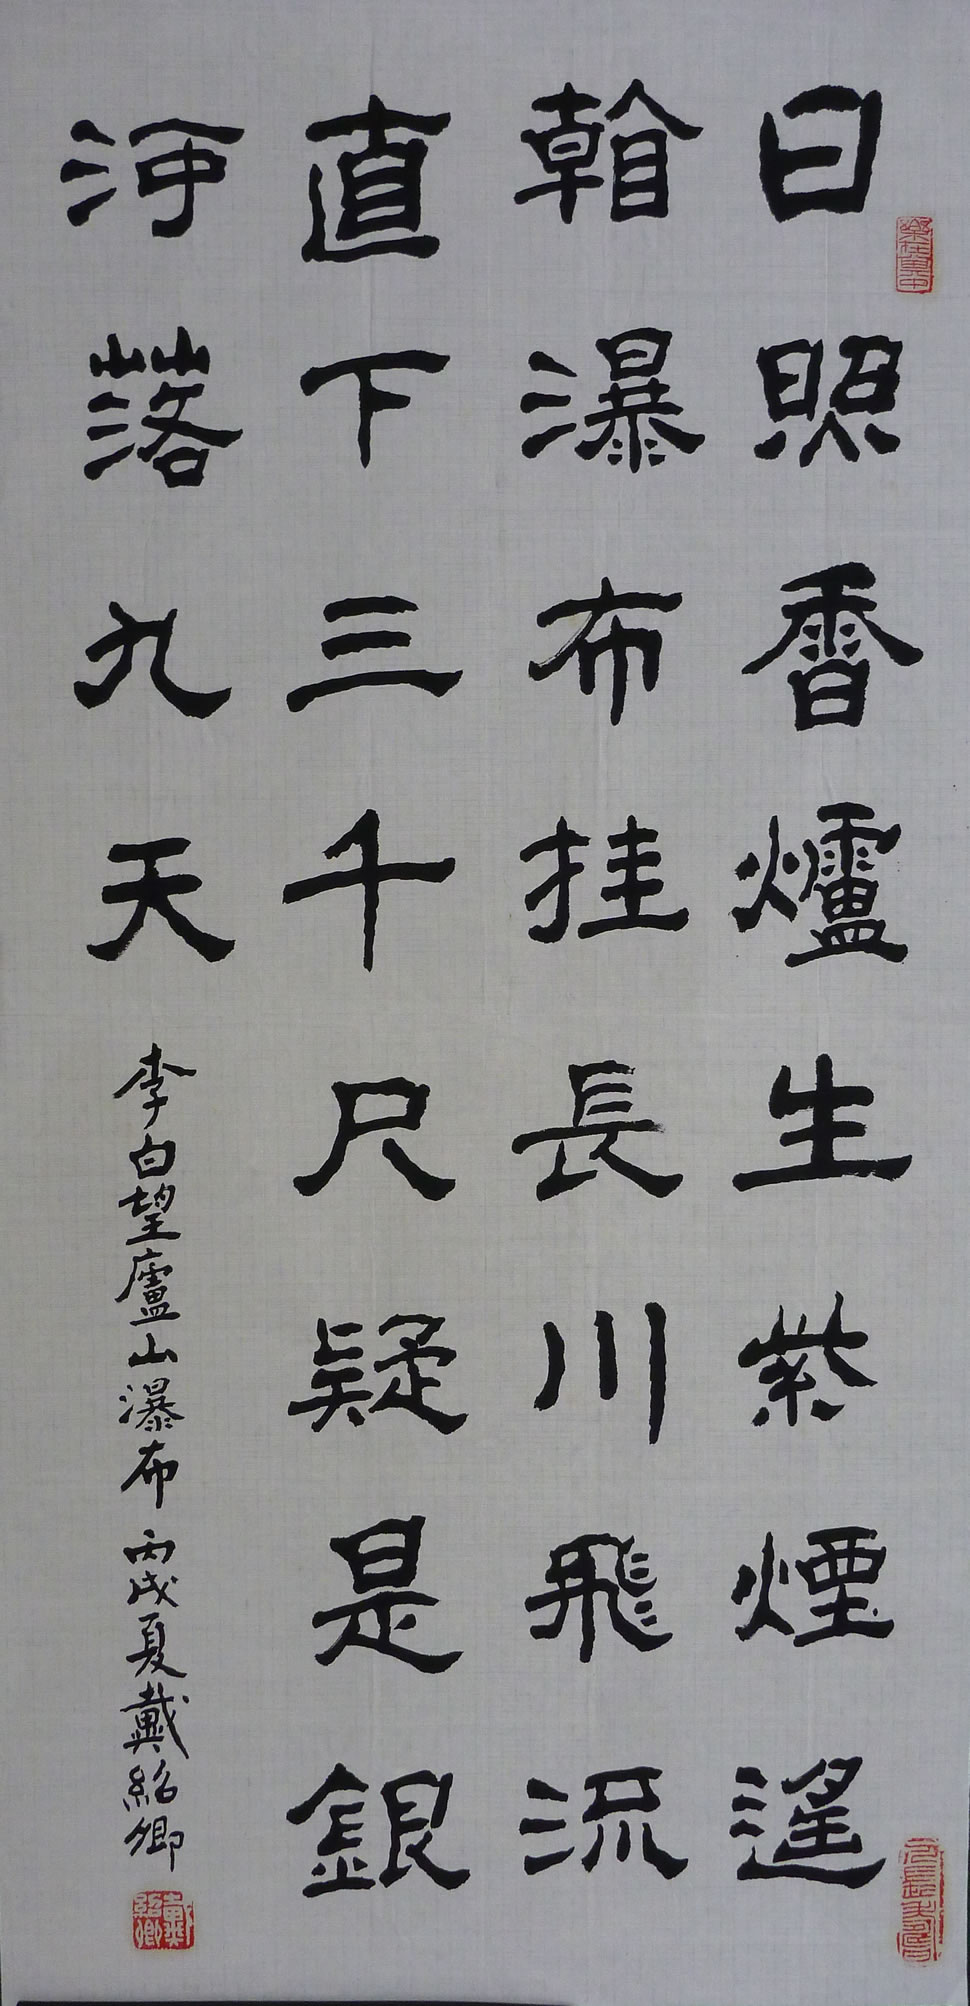 日照香爐生紫煙遙
看瀑布挂長川飛流
直下三千尺疑是銀
河落九天
李白望廬山瀑布 丙戌夏戴紹卿
樂在其中
戴紹卿